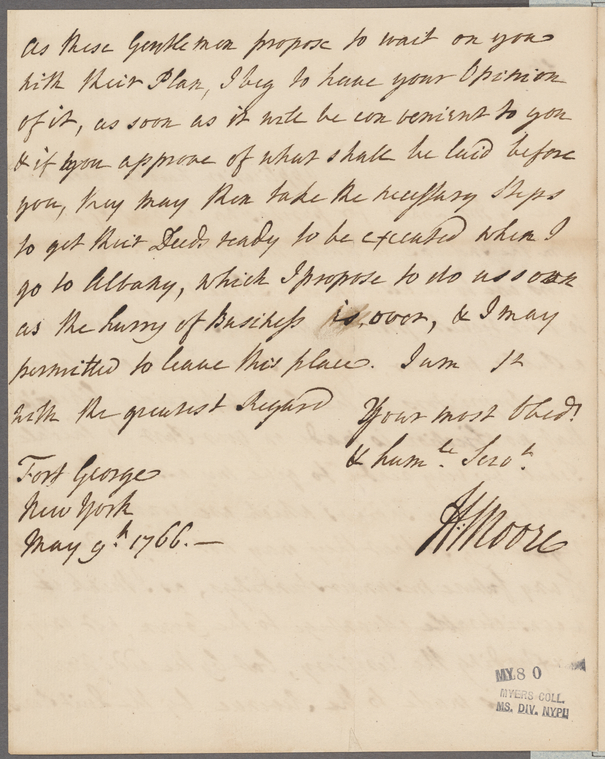 as these Gentlemen propose to wait on you
with their Plan, I beg to have your Opinion
of it, as soon as it will be convenient to you
& if you approve of what shall be laid before
you, they may then take the necessary steps
to get their Deeds ready to be executed when I
go to Albany, which I propose to do as soon
as the hurry of Business is over, & I may
permitted to leave this place. I am Sr
with the greatest Regard Your most Obedt
& humle Servt
Fort George
New York
May 9th 1766. —
H: Moore
MY 80
MYERS COLL.
MS. DIV. NYPL